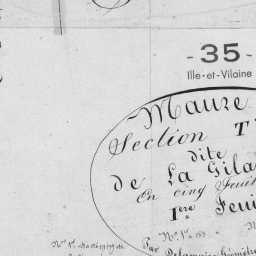 - 35 -
Ille-et-Vilaine
Maure
Section T
dite
de La Gila
En cinq Feuil
1ère Feui
Par